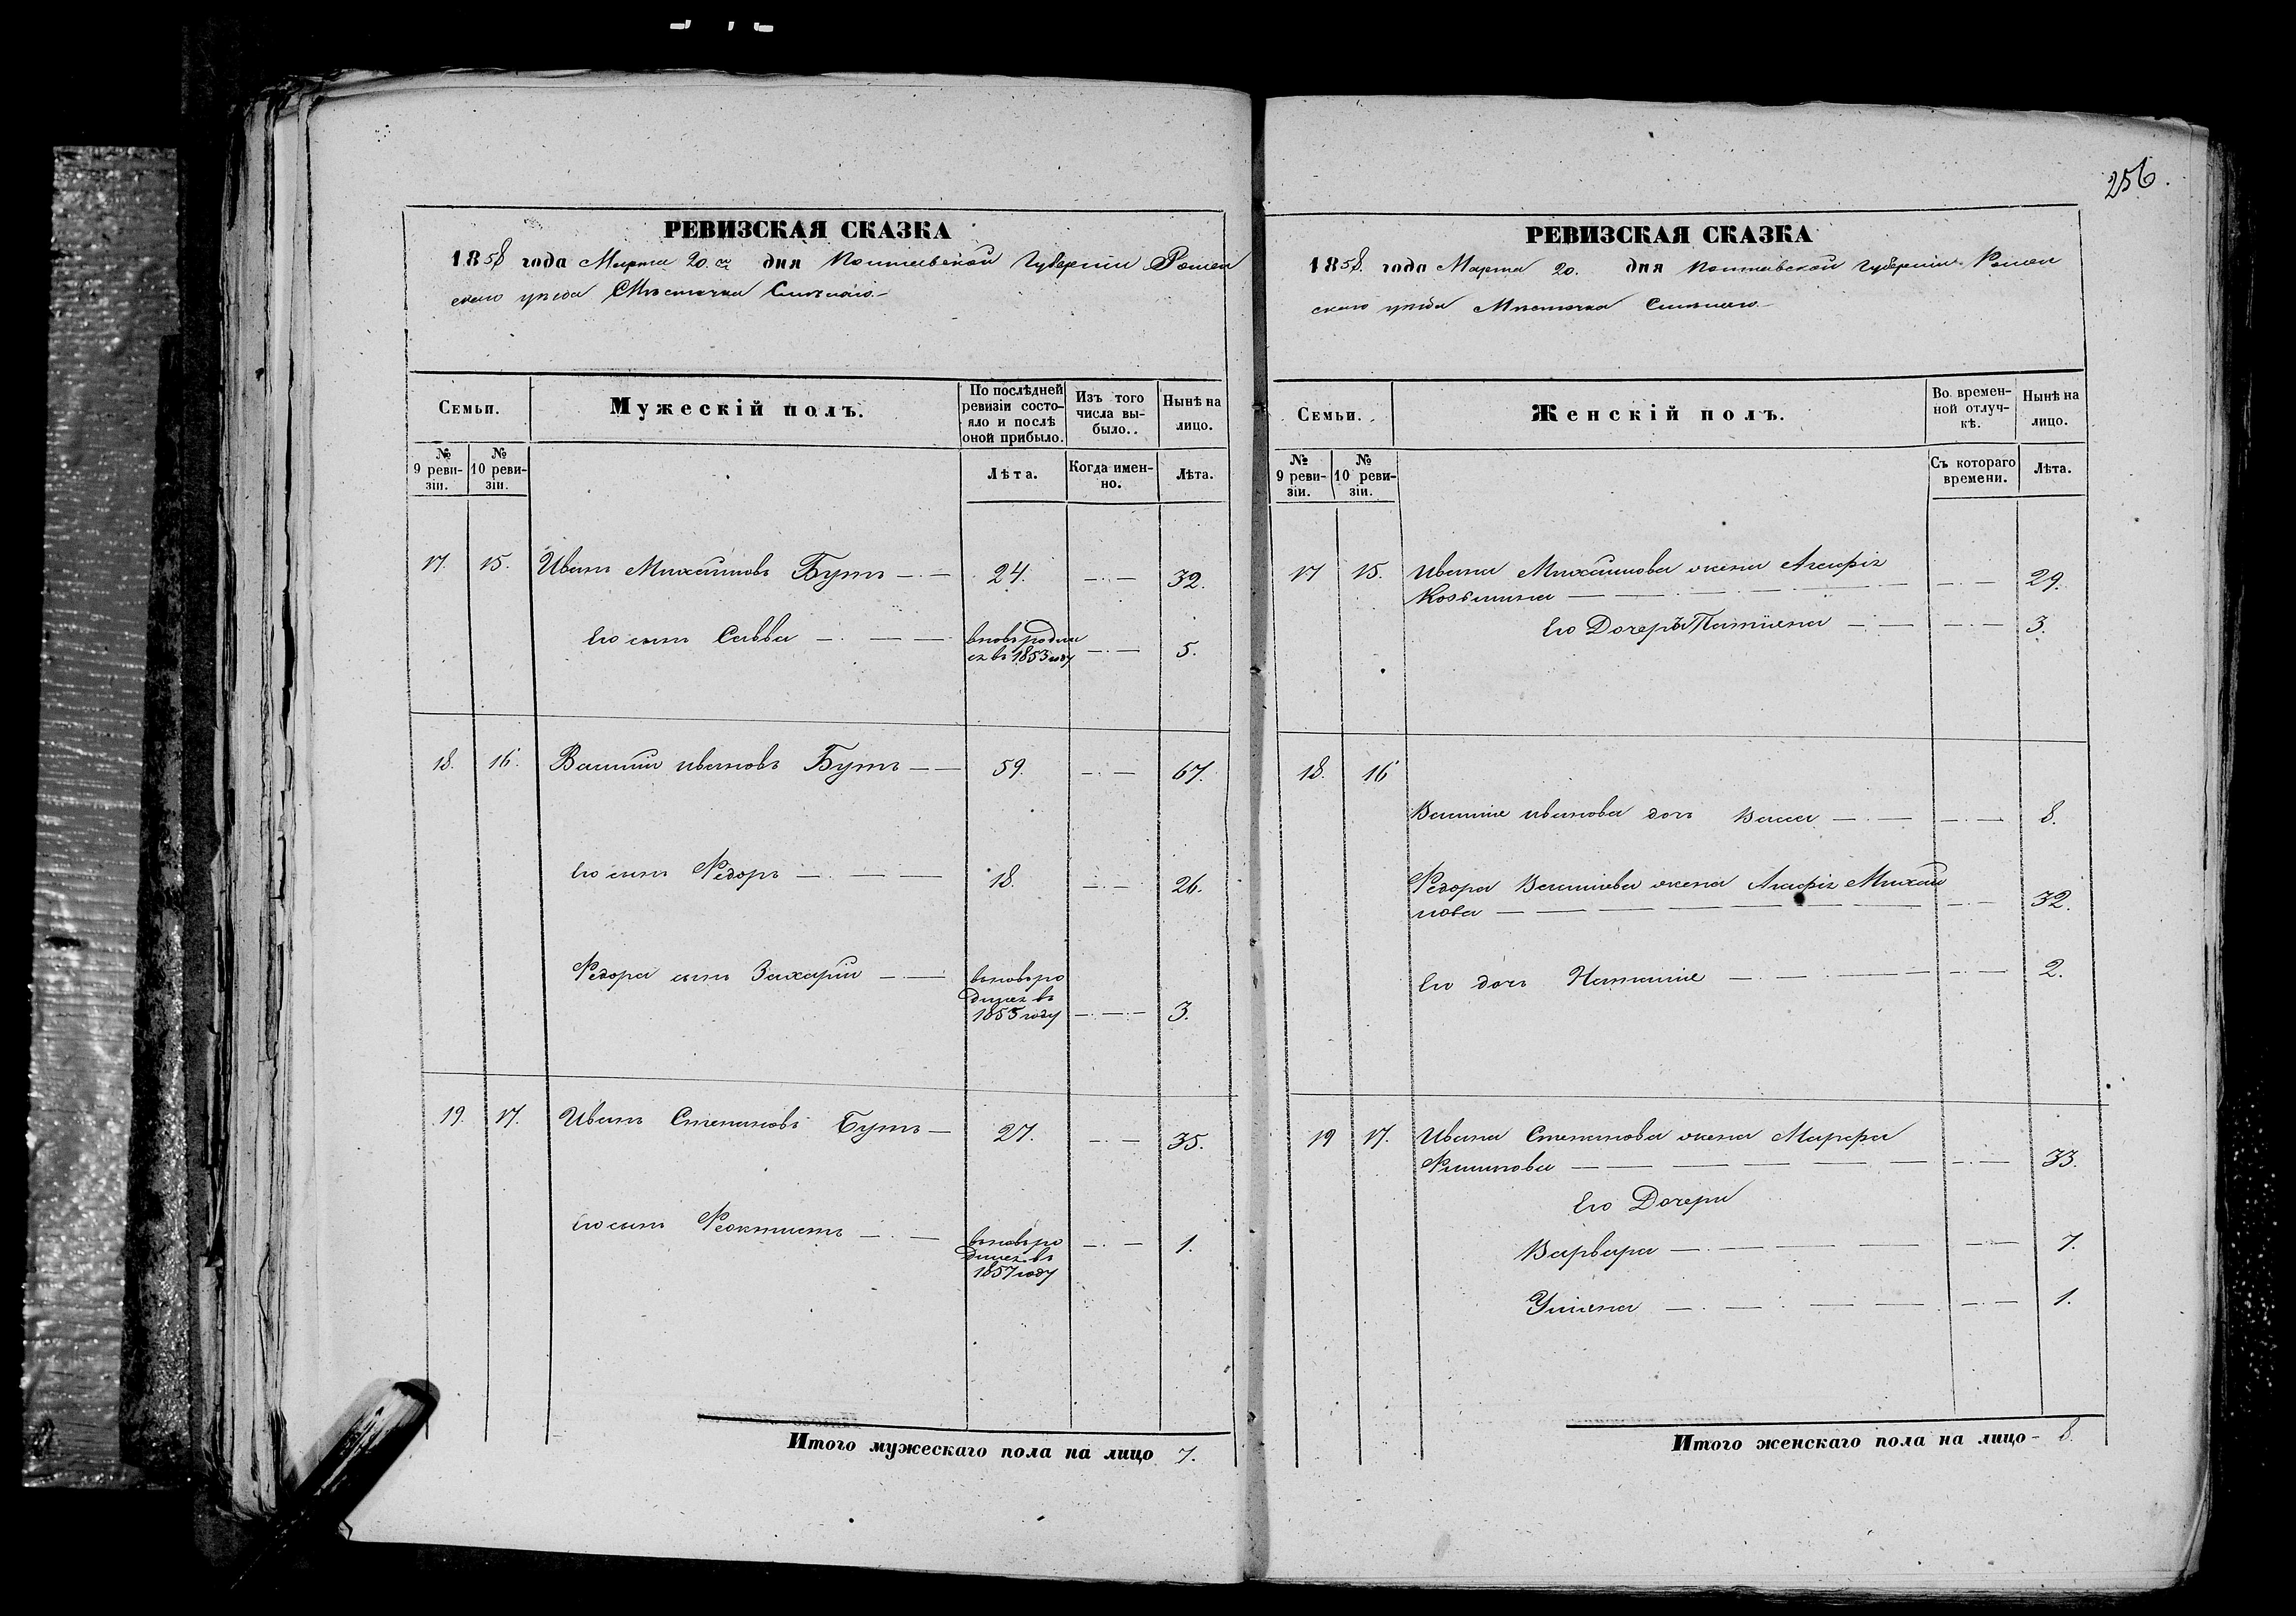 256.
РЕВИЗСКАЯ СКАЗКА
1858 года Марта 20.го дня Полтавской Губерніи Ромен
скаго уѣзда Мѣстечка Смѣлаго.
Семьи.
Мужескій полъ.
По послѣдней
ревизіи состо-
яло и послѣ
оной прибыло.
Изъ того
числа вы-
было..
Нынѣ на
лицо.
№
9 реви-
зіи.
№
10 реви-
зіи.
Лѣта.
Когда имен-
но.
Лѣта.
17. 15. Иванъ Михайловъ Бутъ — 24. — 32.
Его сынъ Савва — вновь родил
ся въ 1853 году — 5.
18. 16. Василій Ивановъ Бутъ — 59. — 67.
Его сынъ Ѳедоръ — 18. — 26.
Ѳедора сынъ Захарій — вновь ро
дился въ
1855 году — 3.
19. 17. Иванъ Степановъ Бутъ — 27. — 35.
Его сынъ Ѳеоктистъ — вновь ро
дился въ
1857 году — 1.
Итого мужескаго пола на лицо 7.
РЕВИЗСКАЯ СКАЗКА
1858. года Марта 20. дня Полтавской Губерніи Ромен
скаго уѣзда Мѣстечка Смѣлаго
Семьи.
Женскій полъ.
Во времен-
ной отлуч-
кѣ.
Нынѣ на
лицо.
№
9 реви-
зіи.
№
10 реви-
зіи.
Съ котораго
времени.
Лѣта.
17 15. Ивана Михайлова жена Агафія
Козьмина — — 29.
Его Дочерь Татіана — — 3.
18. 16
Василія Иванова дочь Васса — — 8.
Ѳедора Васильева жена Агафія Михай
лова — — 32.
Его дочь Наталія — — 2.
19 17. Ивана Степанова жена Марфа
Филипова — — 33.
Его Дочери
Варвара — — 7.
Уліяна — — 1.
Итого женскаго пола на лицо - 8.